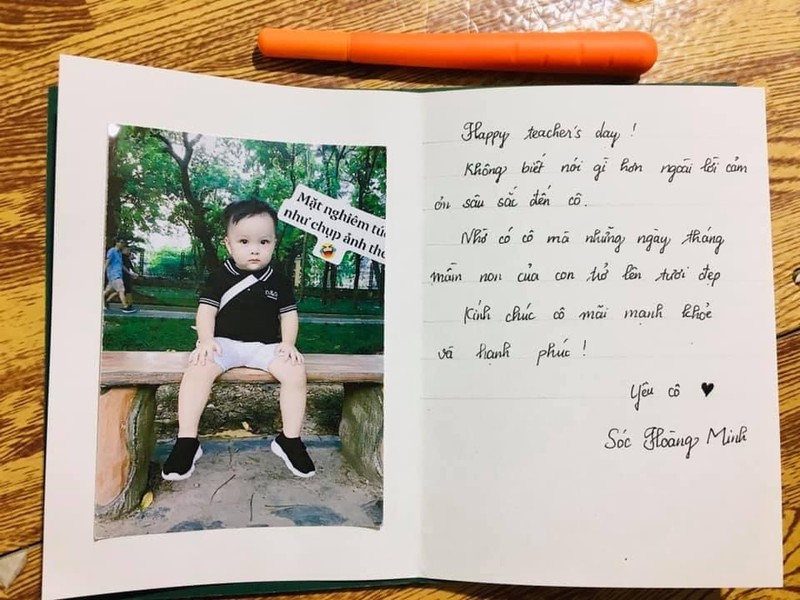 Mặt nghiêm tú
như chụp ảnh the
Happy teacher's day !
Không biết nói gì hơn ngoài lời cảm
ơn sâu sắc đến cô.
Nhờ có cô mà những ngày tháng
mầm non của con trở lên tươi đẹp
Kính chúc cô mãi mạnh khỏe
và hạnh phúc !
Yêu cô ♥
Sóc Hoàng Minh